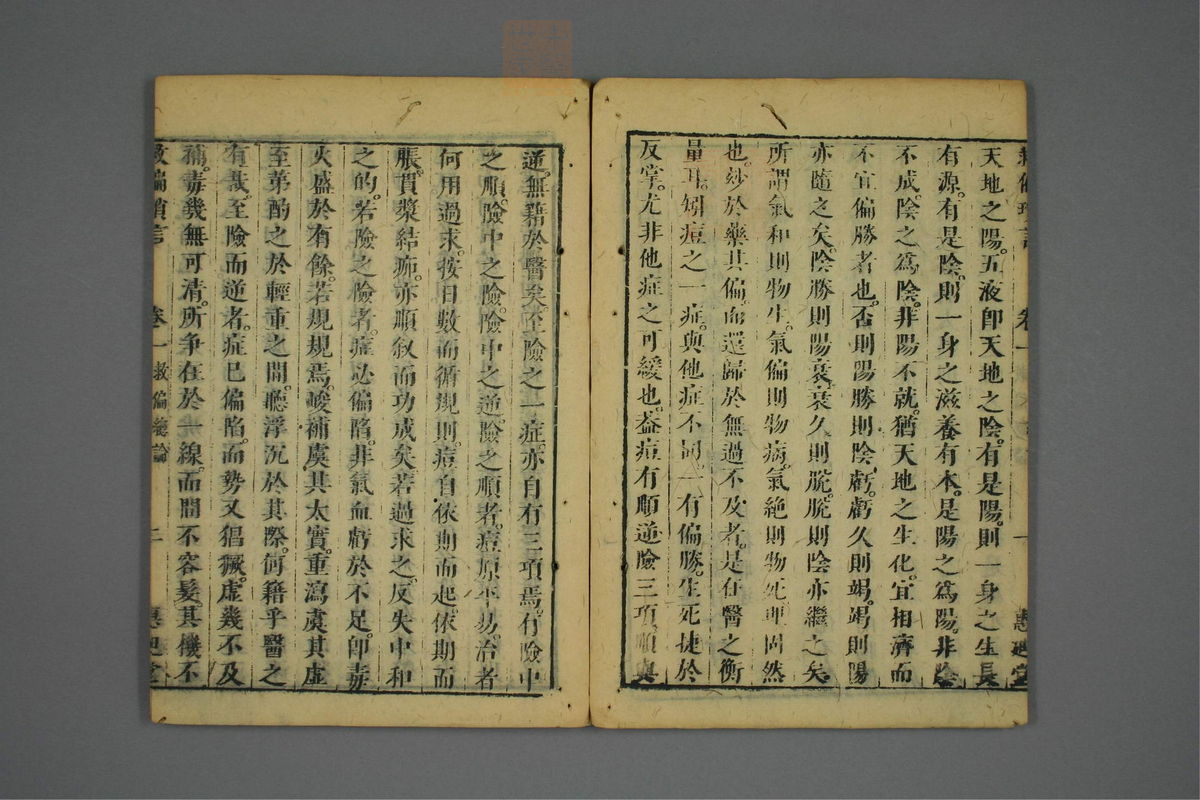 天地之陽。五液卽天地之陰。有是陽。則一身之生長
有源。有是陰。則一身之滋養有本。是陽之爲陽。非陰
不成。陰之爲陰。非陽不就。猶天地之生化。宜相濟而
不宜偏勝者也。否則陽勝則陰虧。虧久則竭。竭則陽
亦隨之矣。陰勝則陽衰。衰久則脫。脫則陰亦繼之矣。
所謂氣和則物生。氣偏則物病。氣絶則物死。理固然
也。玅於藥其偏。而還歸於無過不及者。是在醫之衡
量耳。矧痘之一症。與他症不同。一有偏勝。生死捷於
反掌。尤非他症之可緩也。葢痘有順逆險三項。順與
通。無藉於醫矣。至險之一症。亦自有三項焉。有險中
之順。險中之險。險中之逆。險之順者。痘原平易。治者
何用過求。按日數而循規。則痘自依期而起。依期而
脹。貫漿結痂。亦順叙而功成矣。若過求之。反失中和
之的。若險之險者。症必偏陷。非氣血虧於不足。卽毒
火盛於有餘。若規規焉。峻補虞其太實。重瀉虞其虛
至。第酌之於輕重之間。聽浮沉於其際。何籍乎醫之
有哉。至險而逆者。症已偏陷。而勢又猖獗。虛幾不及
補。毒幾無可清。所争在於一線。而間不容髮。其機不
救偏瑣言 卷一 救偏總論 二 惠迪堂